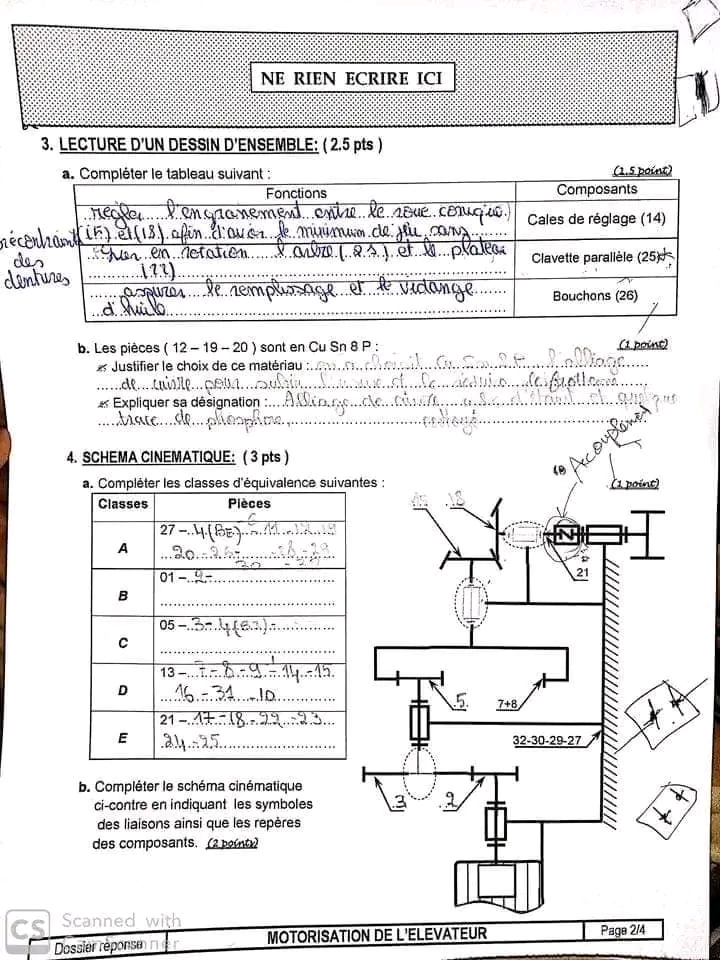 NE RIEN ECRIRE ICI
3. LECTURE D'UN DESSIN D'ENSEMBLE: ( 2.5 pts )
a. Compléter le tableau suivant :
(1.5 point)
Fonctions
Composants
régler l'engrenement entre le roue conique
(15) et (18) afin d'avoir le minimum de jeu sans
des
dentures
Cales de réglage (14)
en rotation l'arbre (23) et le plateau
(22)
Clavette parallèle (25)
assurer le remplissage et le vidange
d'huile
Bouchons (26)
b. Les pièces ( 12 – 19 – 20 ) sont en Cu Sn 8 P :
(1 point)
Justifier le choix de ce matériau : on a choisit Cu Sn 8 P l'alliage
de cuivre pour
Expliquer sa désignation : Alliage de cuivre d'étain et quelque
trace de phosphore,
4. SCHEMA CINEMATIQUE: ( 3 pts )
a. Compléter les classes d'équivalence suivantes :
(1 point)
Classes
Pièces
A
27 – 4(BE)
B
01 – 2 -
C
05 – 3 -
D
13 – 7 - 8 - 9 - 14 - 15
16 - 31 - 10
E
21 – 17 - 18 - 22 - 23
24 - 25
18
21
5
7+8
32-30-29-27
3
2
b. Compléter le schéma cinématique
ci-contre en indiquant les symboles
des liaisons ainsi que les repères
des composants. (2 points)
CS Scanned with
CamScanner
Dossier réponse
MOTORISATION DE L'ELEVATEUR
Page 2/4